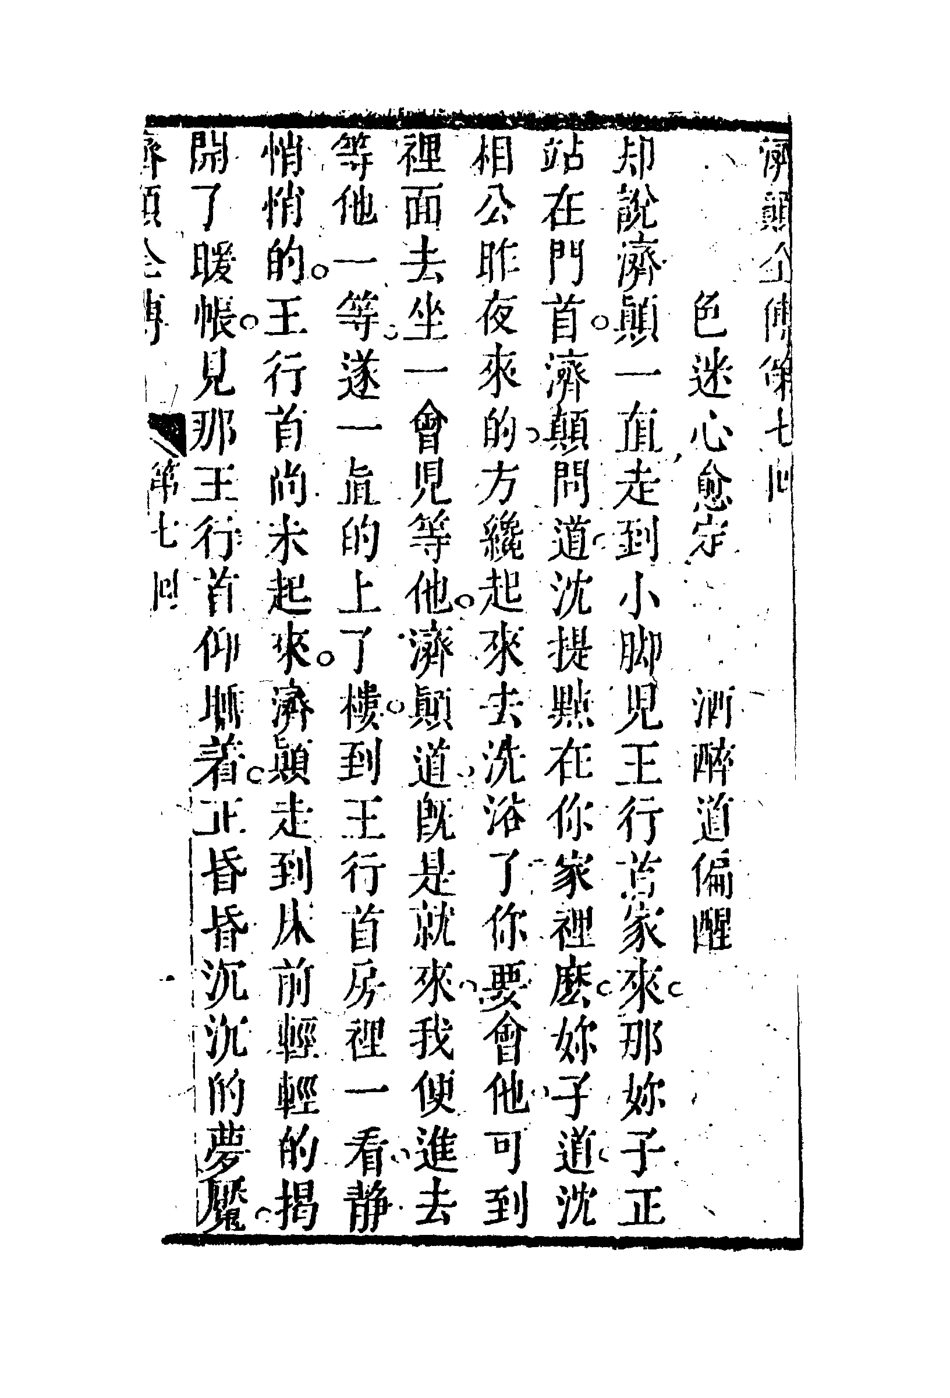 濟顛全傳第七回
色迷心愈定　酒醉道偏醒
却說濟顛一直走到小脚兒王行首家來。那妳子正
站在門首。濟顛問道。沈提點在你家裡麽。妳子道。沈
相公昨夜來的。方纔起來去洗浴了。你要會他。可到
裡面去坐一會兒等他。濟顛道。旣是就來。我便進去
等他一等。遂一直的上了樓。到王行首房裡一看。静
悄悄的。王行首尚未起來。濟顛走到床前輕輕的揭
開了暖帳。見那王行首仰睡着。正昏昏沉沉的夢魘。
濟顛全傳　第七回